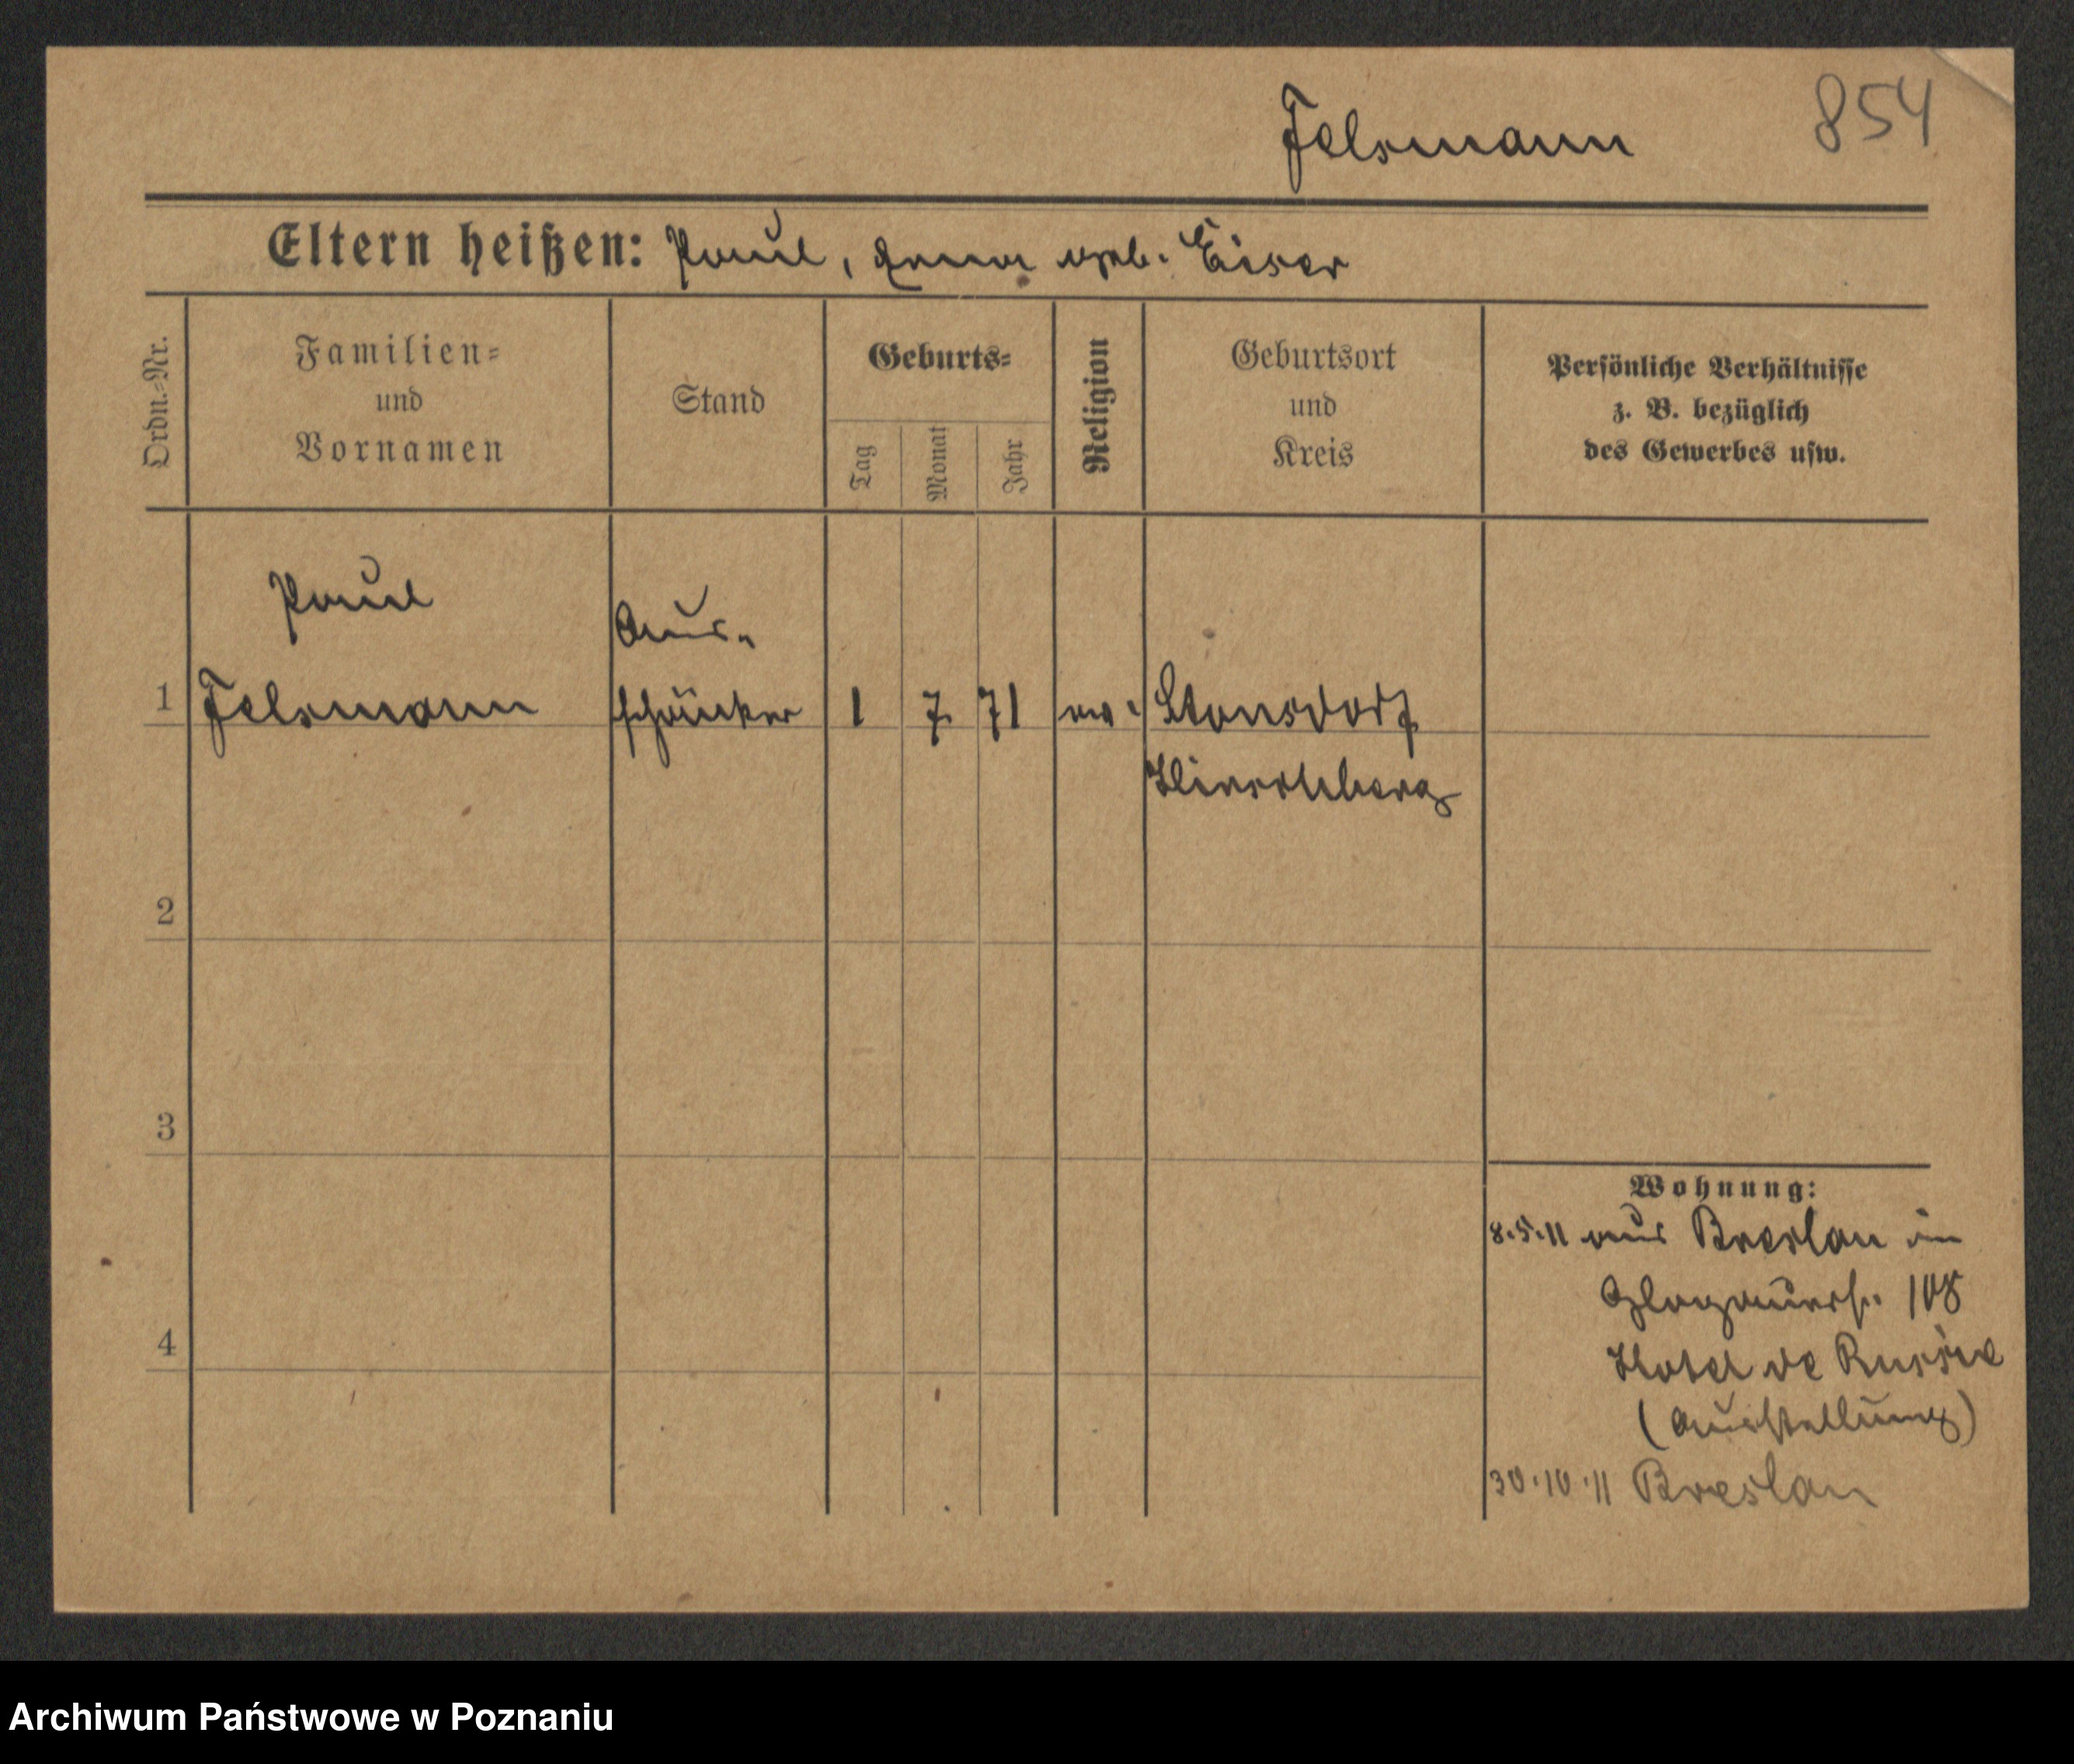 Felsmann 854
Eltern heißen: Paul, Anna geb. Eiser
Ordn.-Nr.
Familien-
und
Vornamen
Stand
Geburts-
Tag
Monat
Jahr
Religion
Geburtsort
und
Kreis
Persönliche Verhältnisse
z. B. bezüglich
des Gewerbes usw.
Paul
Aus-
1 Felsmann schänker 1 7. 71 ev. Stonsdorf
Hirschberg
2
3
4
Wohnung:
8.5.11 aus Breslau in
Glogauerstr. 108
Hotel de Russie
(Ausstellung)
30.10.11 Breslau
Archiwum Państwowe w Poznaniu